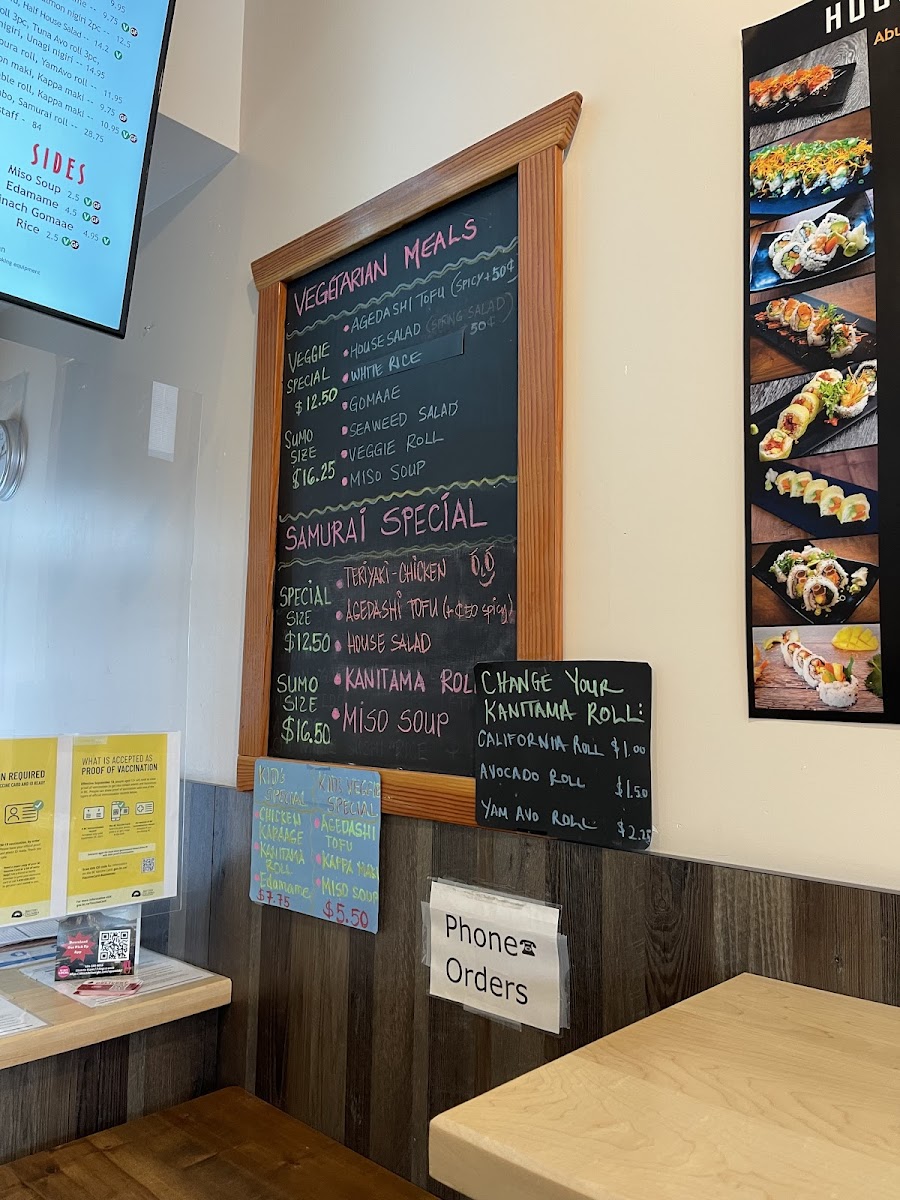 9.95
9.95
nigiri 2pc -- 12.5
Half House Salad -- 14.2
roll 3pc, Tuna Avo roll 3pc,
nigiri, Unagi nigiri -- 14.95
roll, YamAvo roll -- 11.95
maki, Kappa maki -- 9.75
roll, Kappa maki -- 10.95
Samurai roll -- 28.75
84
SIDES
Miso Soup 2.5
Edamame 4.5
Gomaae 4.95
Rice 2.5
VEGETARIAN MEALS
VEGGIE
SPECIAL
$12.50
SUMO
SIZE
$16.25
• AGEDASHI TOFU (SPICY+50¢)
• HOUSE SALAD (SPRING SALAD) 50¢
• WHITE RICE
• GOMAAE
• SEAWEED SALAD
• VEGGIE ROLL
• MISO SOUP
SAMURAI SPECIAL
SPECIAL
SIZE
$12.50
SUMO
SIZE
$16.50
• TERIYAKI-CHICKEN
• AGEDASHI TOFU (+¢50 spicy)
• HOUSE SALAD
• KANITAMA ROL
• MISO SOUP
CHANGE YOUR
KANITAMA ROLL:
CALIFORNIA ROLL $1.00
AVOCADO ROLL $1.50
YAM AVO ROLL $2.25
KID'S
SPECIAL
• CHICKEN
KARAAGE
• KANITAMA
ROLL
• Edamame
$7.75
KIDS VEGGIE
SPECIAL
• AGEDASHI
TOFU
• KAPPA MAKI
• MISO SOUP
$5.50
Phone☎
Orders
REQUIRED
WHAT IS ACCEPTED AS
PROOF OF VACCINATION
HOU
Abu